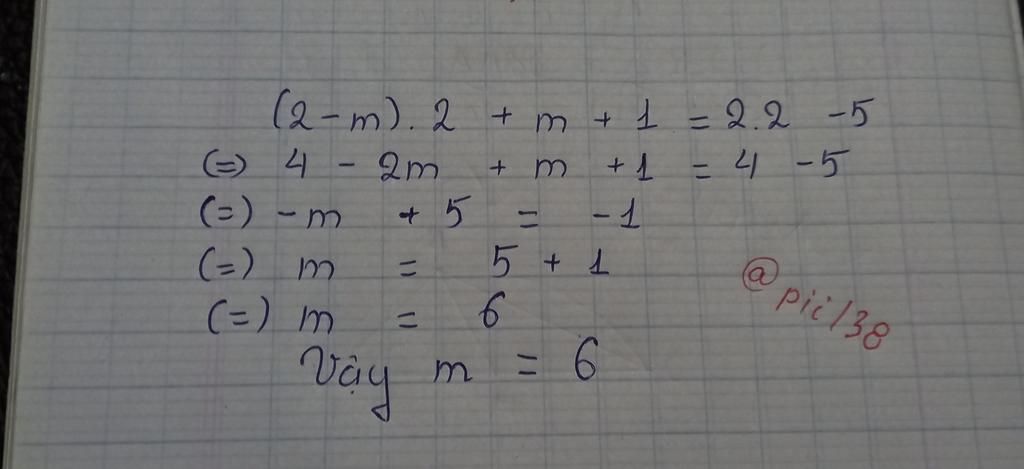 (2-m).2 + m + 1 = 2.2 -5
(=) 4 - 2m + m +1 = 4 -5
(=) -m + 5 = -1
(=) m = 5 + 1
(=) m = 6
Vậy m = 6
@pic138